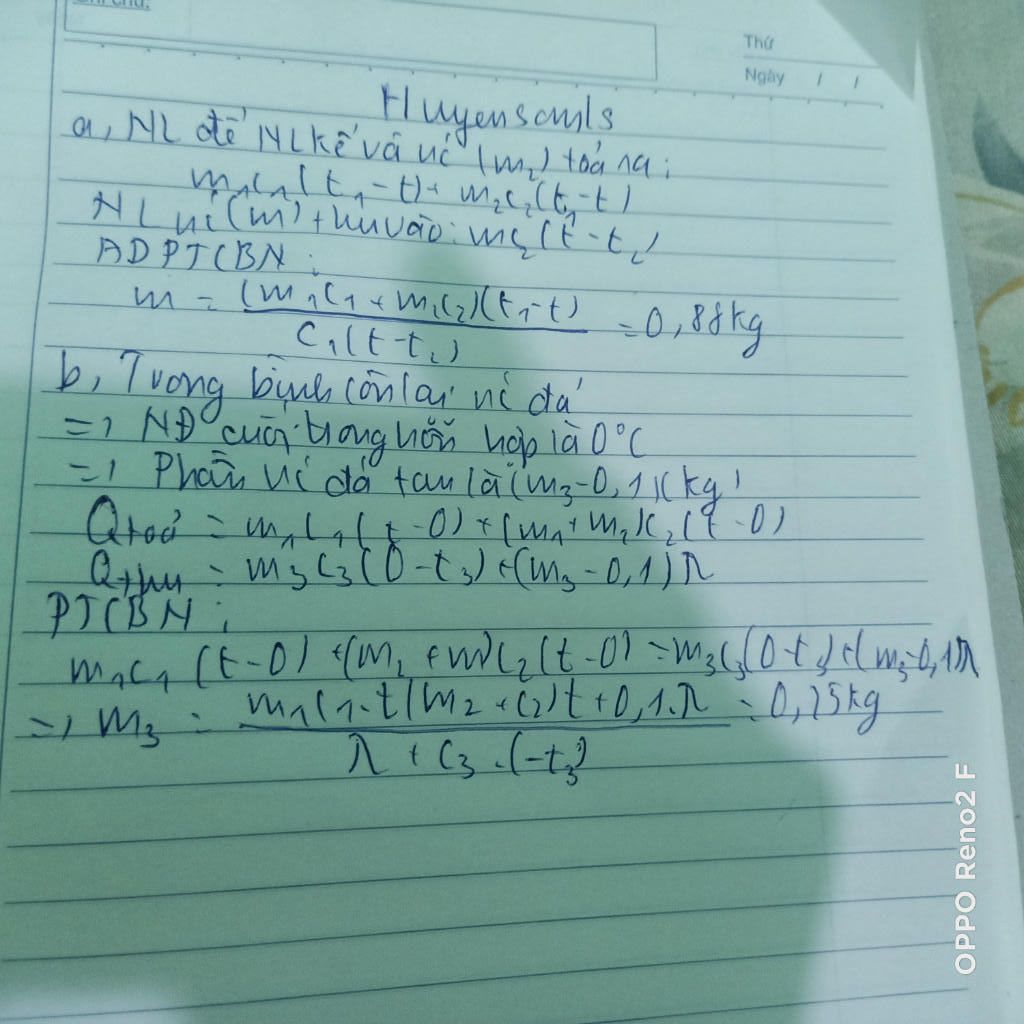 Ghi chú:
Thứ
Ngày / /
Huyensamls
a, NL để NL kế và nc (m₂) toả ra:
m₁c₁(t₁-t)+ m₂c₂(t₁-t)
NL nc (m) thu vào: mc₂(t-t₂)
ADPTCBN:
m = (m₁c₁ + m₂c₂)(t₁-t) / c₁(t-t₂) = 0,88kg
b, Trong bình còn lại nc đá
=> NĐ cuối trong hỗn hợp là 0°C
=> Phần nc đá tan là (m₃-0,1)(kg)
Qtoả = m₁c₁(t-0)+(m₁+m₂)c₂(t-0)
Qthu = m₃c₃(0-t₃)+(m₃-0,1)λ
PTCBN:
m₁c₁(t-0)+(m₂+m)c₂(t-0)=m₃c₃(0-t₃)+(m₃-0,1)λ
=> m₃ = m₁c₁.t(m₂+c₂)t+0,1.λ / λ + c₃.(-t₃) = 0,25kg
OPPO Reno2 F